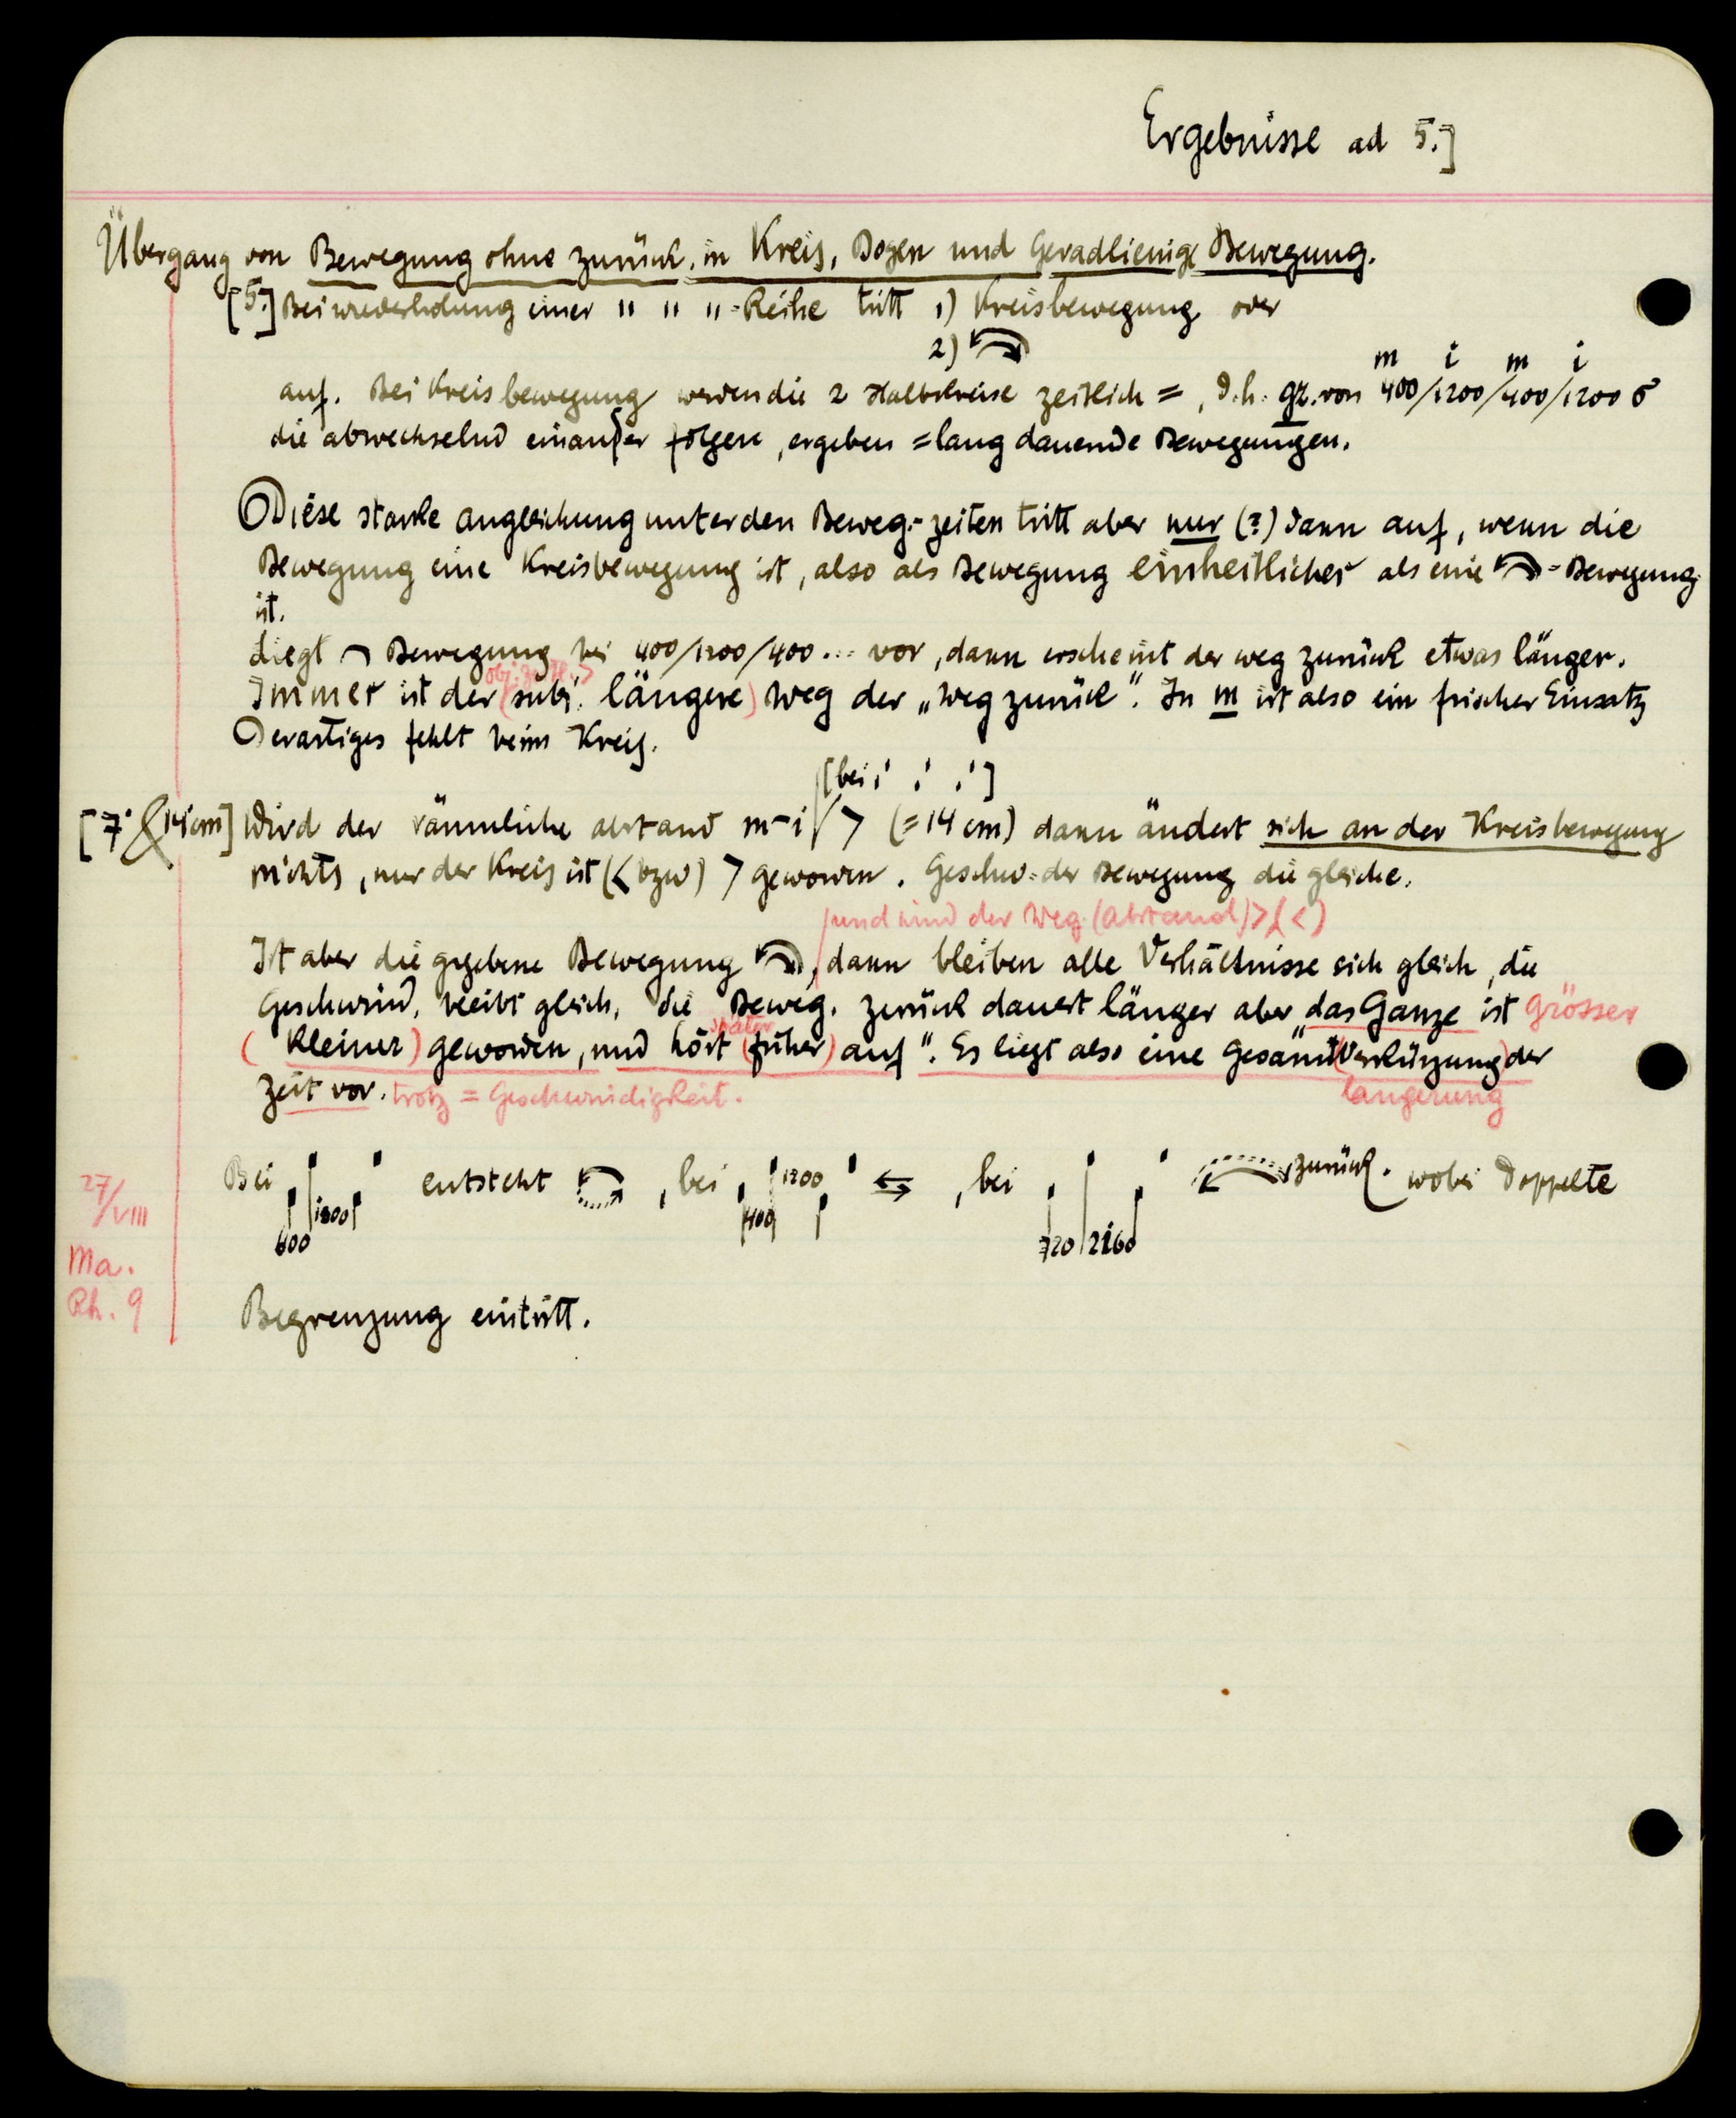 Ergebnisse ad 5.]
Übergang von Bewegung ohne zurück, in Kreis, Bogen und Geradlienige Bewegung.
[5.] Bei wiederholung einer " " " -Reihe tritt 1) Kreisbewegung oder
2)
m i m i
auf. Bei Kreisbewegung werden die 2 Halbkreise zeitlich =, d.h. gz. von 400/1200/400/1200 σ
die abwechselnd einander folgen, ergeben = lang dauernde Bewegungen.
Diese starke angleichung unter den Beweg.-zeiten tritt aber nur (?) dann auf, wenn die
Bewegung eine Kreisbewegung ist, also als Bewegung einheitlicher als eine -Bewegung
ist.
Liegt Bewegung bei 400/1200/400... vor, dann erscheint der weg zurück etwas länger.
Immer ist der (subj. längere) Weg der „Weg zurück". In m ist also ein frischer Einsatz
Derartiges fehlt beim Kreis.
[bei ]
[7. & 14 cm] Wird der räumliche abstand m-i > (=14 cm) dann ändert sich an der Kreisbewegung
nichts, nur der Kreis ist (< bzw) > geworden. Geschw. der Bewegung die gleiche.
und wird der Weg (Abstand) > (<)
Ist aber die gegebene Bewegung , dann bleiben alle Verhältnisse sich gleich, die
Geschwind. bleibt gleich, die Beweg. zurück dauert länger aber „das Ganze ist grösser
später
(kleiner) geworden, und hört (früher) auf". Es liegt also eine Gesamt(verkürzung) der
Zeit vor. trotz = Geschwindigkeit. längerung
Bei entsteht , bei 1200 , bei zurück. wobei Doppelte
600 1800 400 720 2160
27/VIII
Ma.
Rh. 9
Begrenzung eintritt.